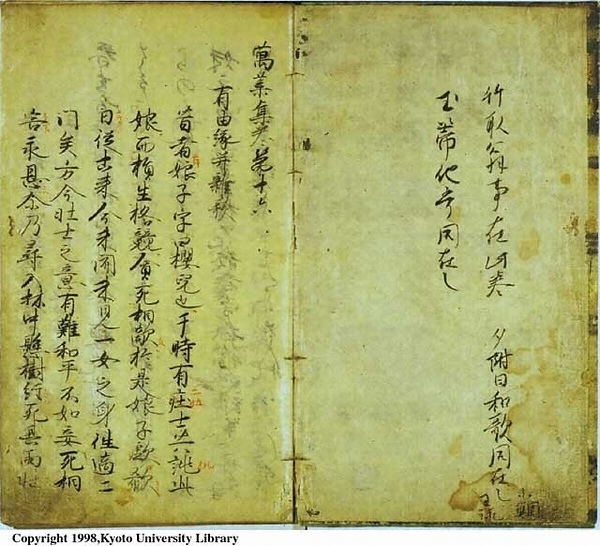 竹取翁事在此巻 夕附日和歌同在之
同在之
萬葉集巻第十六
有由縁并雜歌
昔者娘子字曰櫻兒也于時有壮士共誂此
娘而捐生格競貪死相敵於是娘子歔欷
曰從古来今未聞未見一女之身往適二
門矣方今壮士之意有難和平不如妾死相
害永息尓乃尋入林中懸樹經死其両壮
Copyright 1998,Kyoto University Library